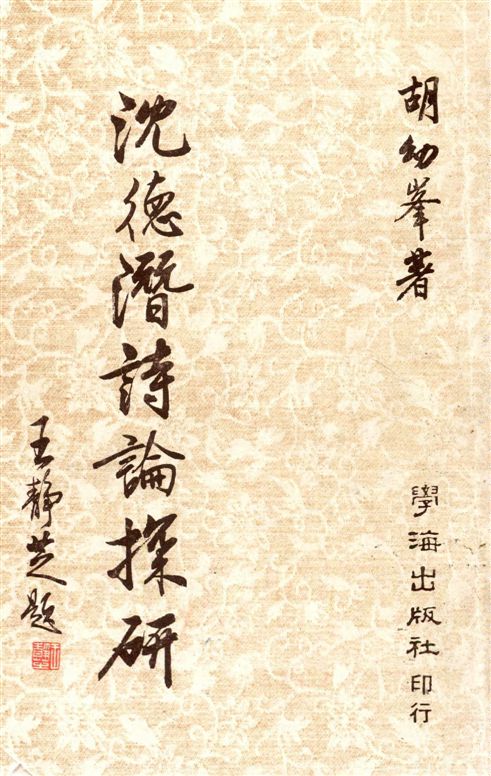 胡幼峯著
學海出版社印行
沈德潛詩論探研
王靜芝題